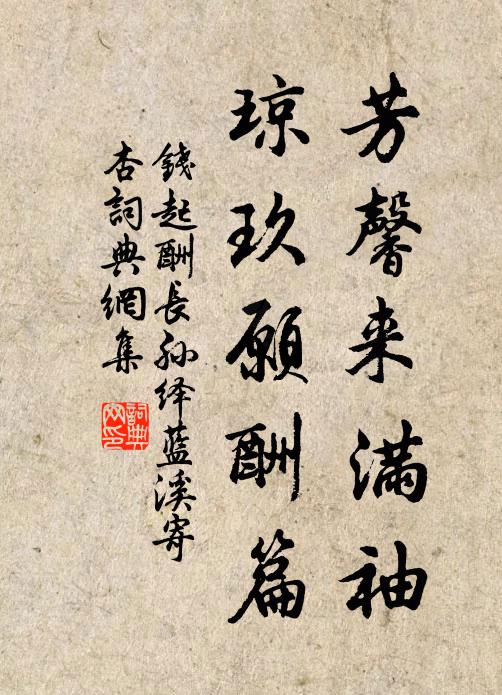 芳馨来满袖
琼玖願酬篇
錢起酬長孙绎藍溪寄
杏詞典網集
詞典网印